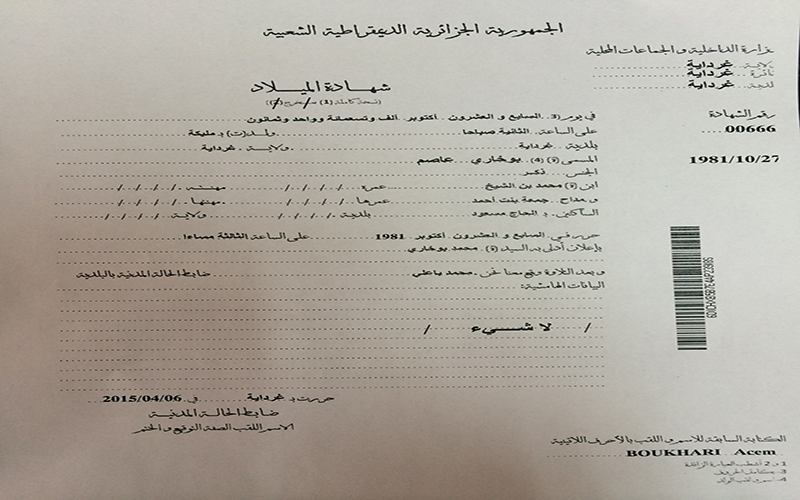 الجمهورية الجزائرية الديمقراطية الشعبية
وزارة الداخلية و الجماعات المحلية
ولاية.. غرداية
دائرة غرداية
بلدية.. غرداية
شهادة الميلاد
(نسخة كاملة (1)
رقم الشهادة
00666
1981/10/27
في يوم (3) السابع و العشرون . أكتوبر . ألف وتسعمائة وواحد وثمانون
على الساعة.. الثانية صباحا ولد(ت) بـ مليكة
بلدية.. غرداية ولاية.. غرداية
المسمى (ة) (4).. بوخاري.. عاصم
الجنس.. ذكر
ابن (ة) محمد بن الشيخ عمره / / / / / مهنته / / / / /
و مداح.. جمعة بنت احمد عمرها / / / / / مهنتها / / / / /
الساكنين.. بـ الحاج مسعود بلدية / / / / / ولاية / / / / /
حرر في.. السابع و العشرون.. أكتوبر 1981 على الساعة الثالثة مساءا
بإعلان أدلى به السيد (ة).. محمد بوخاري
و بعد التلاوة وقع معنا نحن.. محمد باعلي ضابط الحالة المدنية بالبلدية
البيانات الهامشية:
/ لا شيء /
حررت بـ غرداية في 2015/04/06
ضابط الحالة المدنية
الاسم اللقب الصفة التوقيع و الختم
الكتابة السابقة للاسم و اللقب بالأحرف اللاتينية
BOUKHARI Acem
1 و 2 أشطب العبارة الزائدة
3- يستكمل بالحروف
4- اسم و لقب الولد